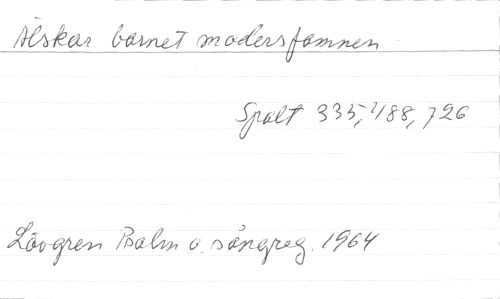 Älskar barnet modersfamnen
Spalt 335, 488, 726
Lövgren Psalm o. sångreg. 1964